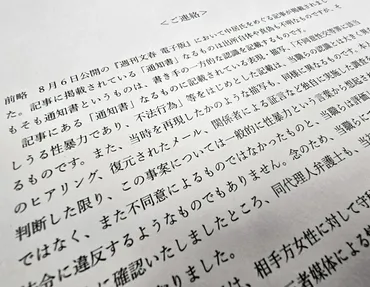 <ご連絡>
前略　8月6日公開の『週刊文春 電子版』において中居氏をめぐる記事が
た。記事に掲載されている「通知書」なるものは出所自体や真偽も不明なものですが、そ
もそも通知書というものは、書き手の一方的な認識を記載するものです。
記事にある「通知書」なるものに記載されている表現、描写、「不同意性交等罪に該当
しうる性暴力であり、不法行為」等をはじめとした記載は、当職らの認識とは大きく異な
るものです。また、当時を再現したかのような描写も、同様に異なるものです。本人
のヒアリング、復元されたメール、関係者による証言など独自に実施した調査を
判断した限り、この事案については一般的に性暴力という言葉から
ではなく、また不同意によるものではなかったものと、当職らは評価し
法令に違反するようなものでもありません。念のため、当職らに
に確認いたしましたところ、同代理人弁護士も、当
りました。
は、相手方女性に対して守秘
三者媒体による